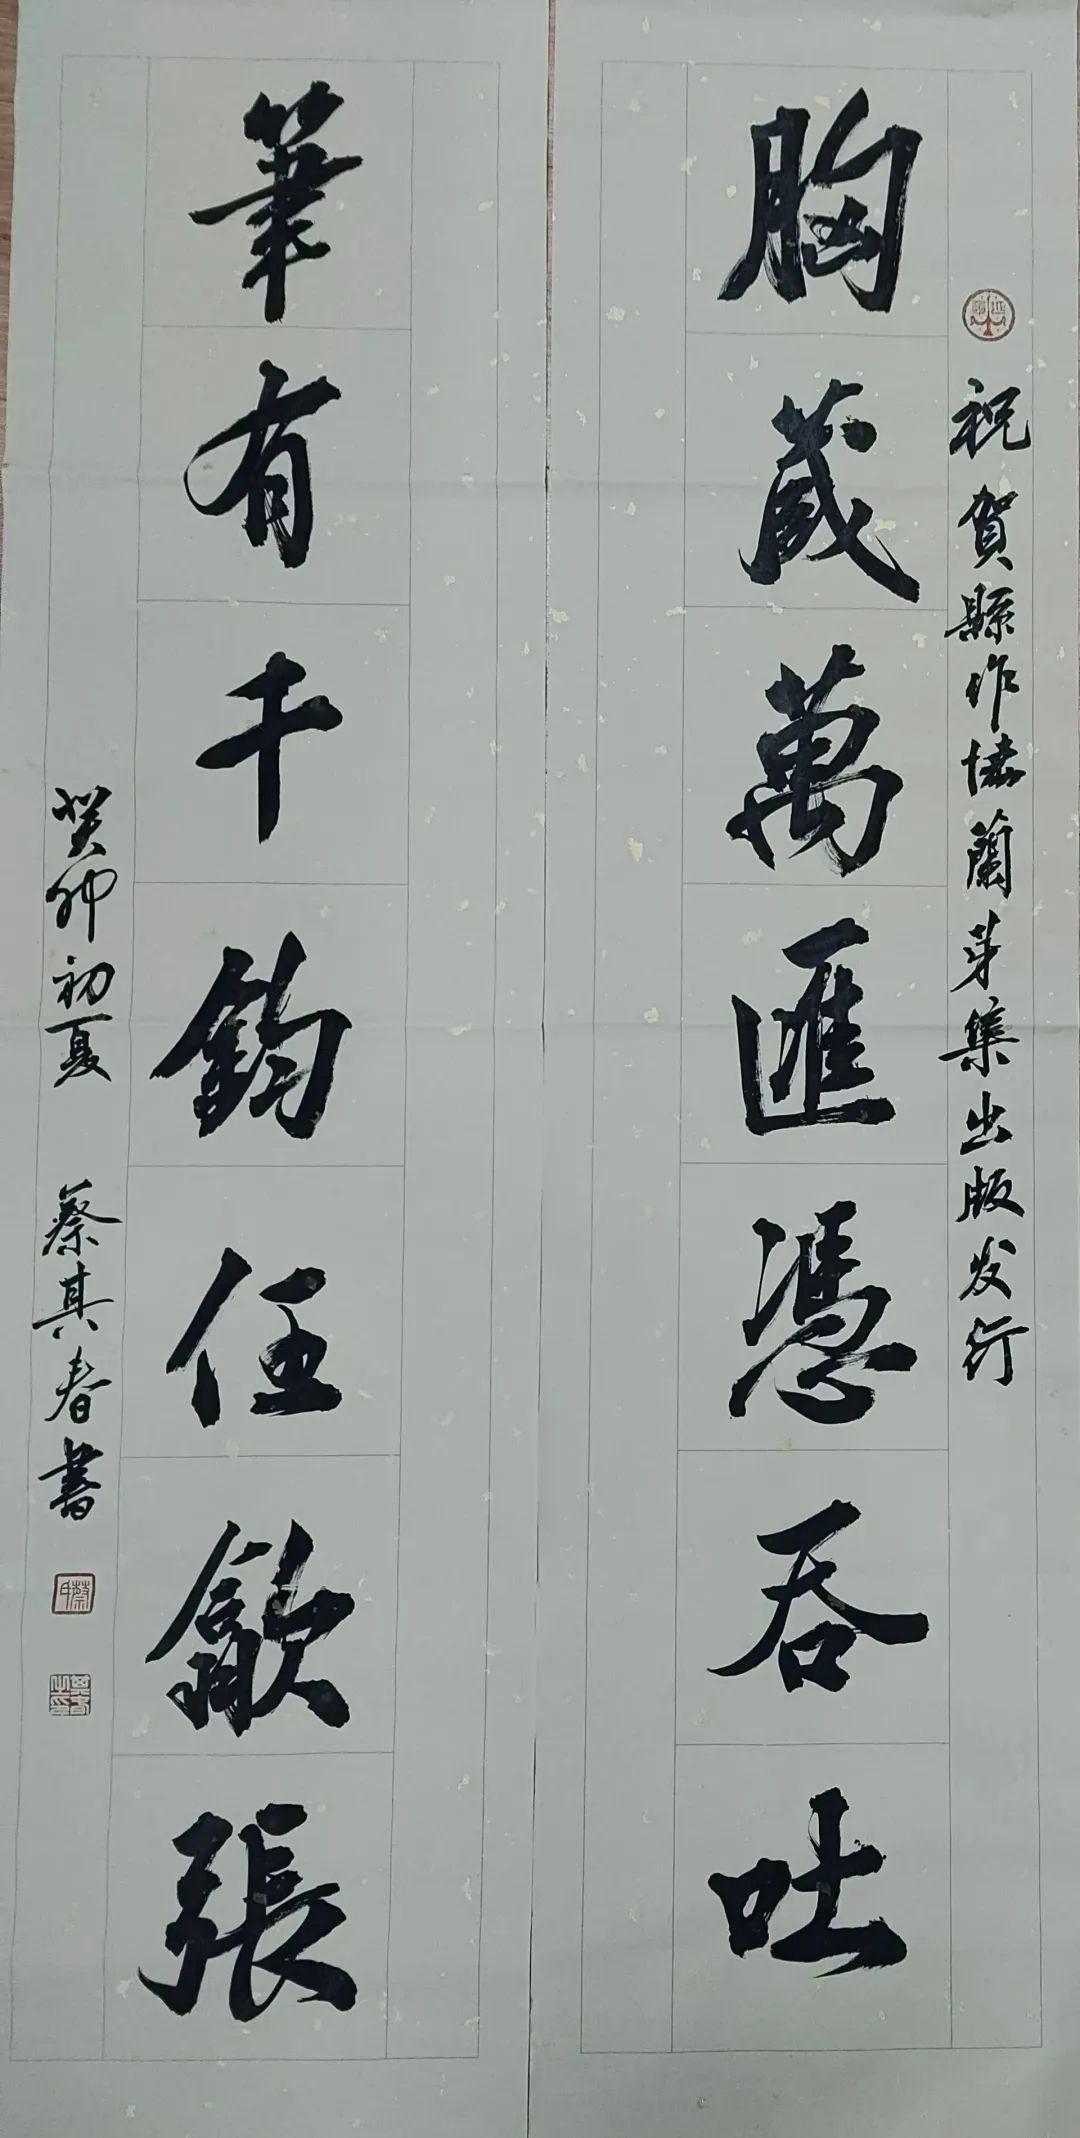 祝賀縣作協蘭芽集出版发行
胸藏萬匯憑吞吐
筆有千鈞任歙張
癸卯初夏 蔡其春書